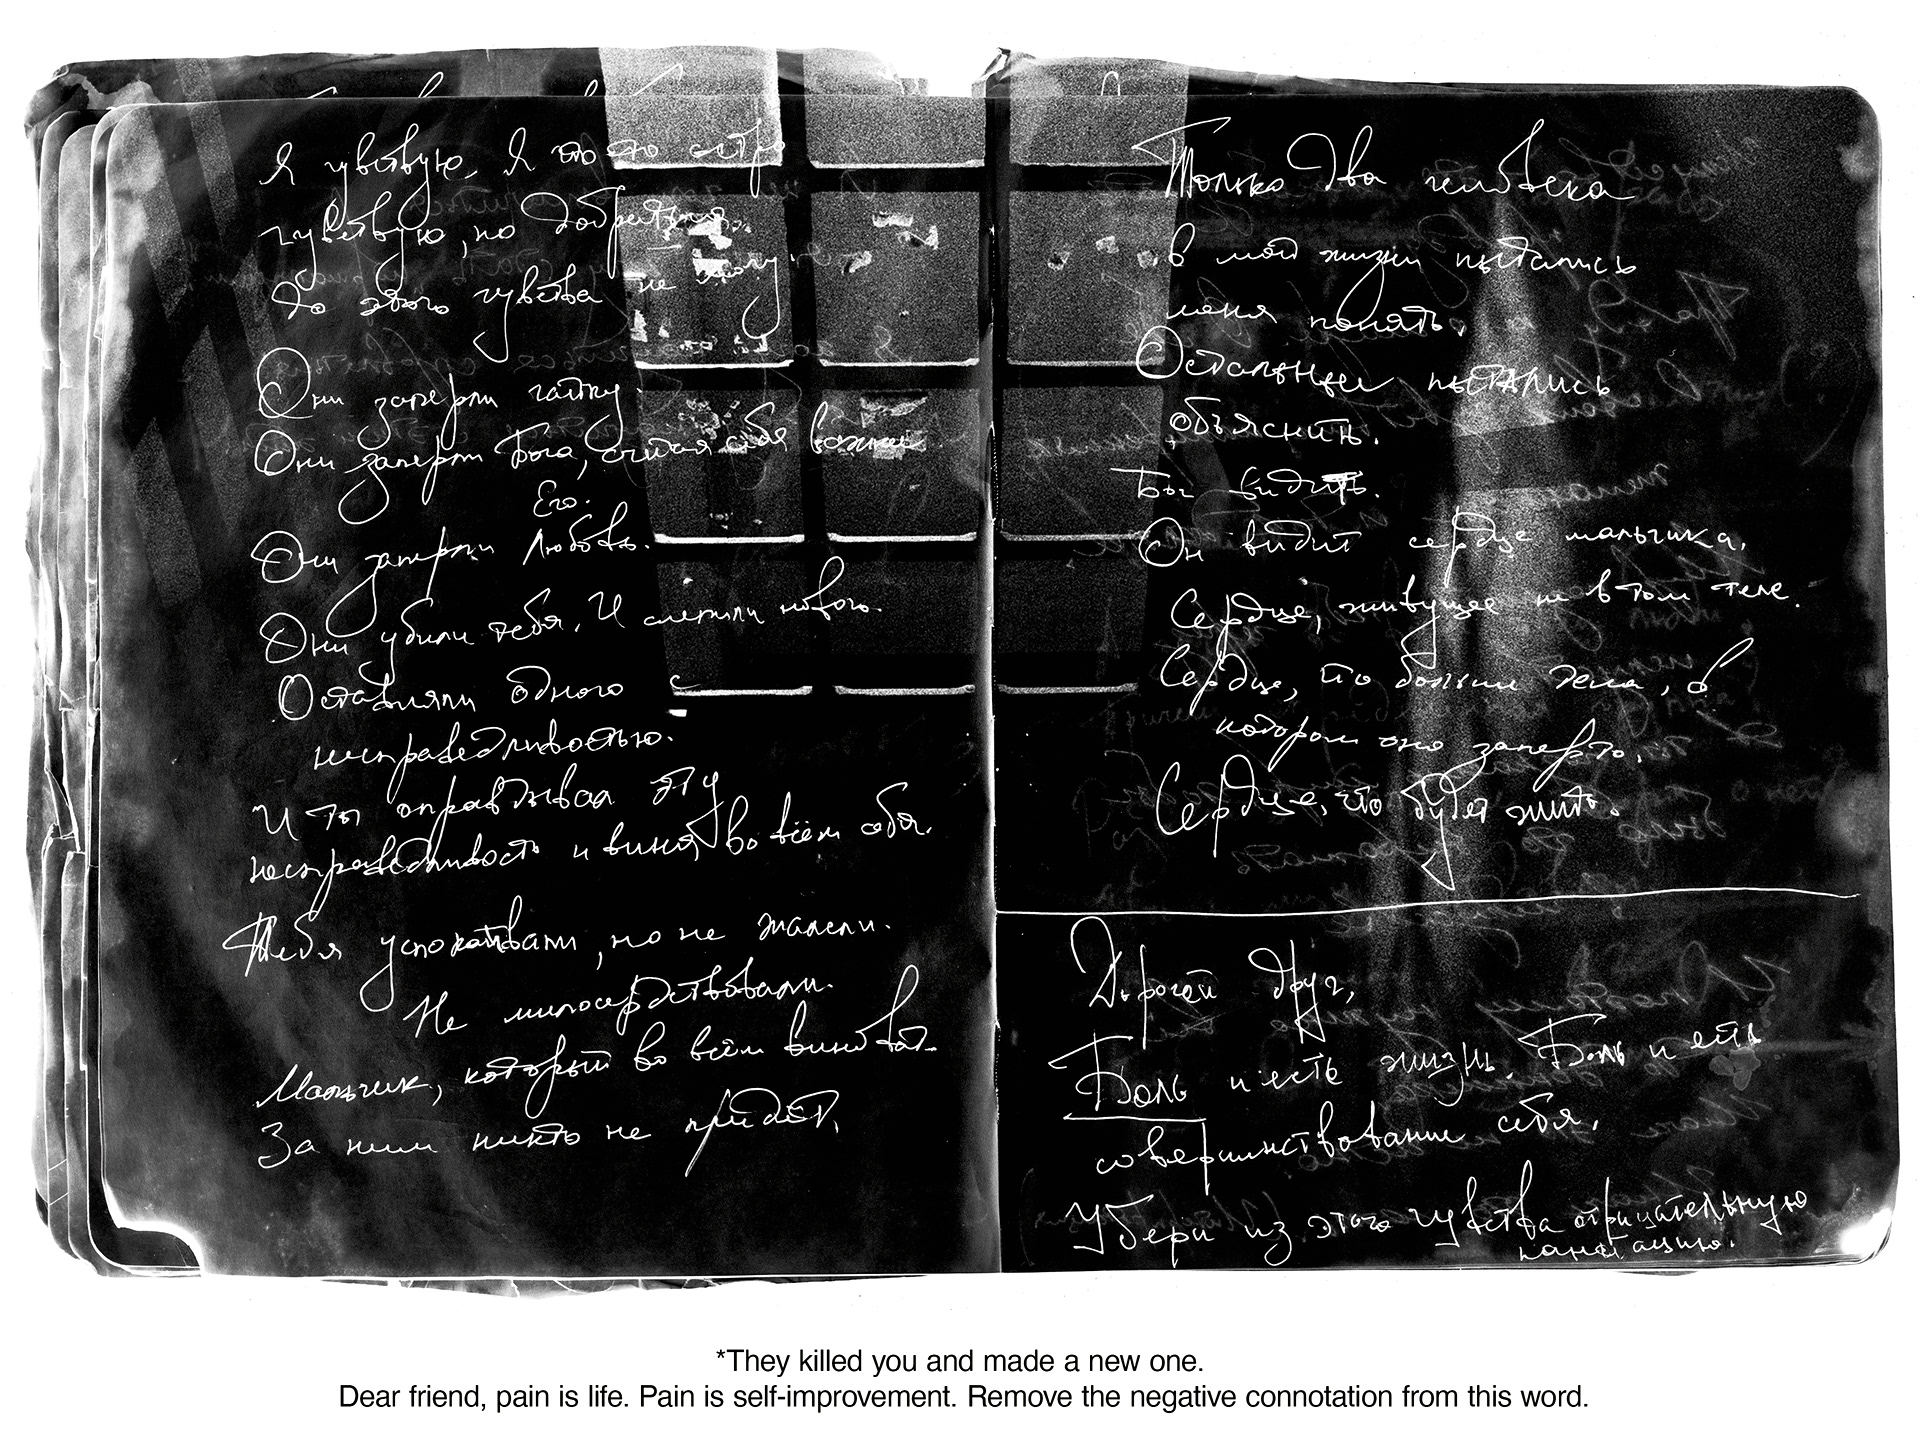 Я чувствую, Я что-то остро
чувствую, но добраться
До этого чувства не могу.
Они заперли чайку.
Они заперли Бога, считая себя важнее
Его.
Они заперли Любовь.
Они убили тебя. И слепили нового.
Оставляли одного с
несправедливостью.
И ты оправдывал эту
несправедливость и винил во всём себя.
Тебя успокаивали, но не жалели.
Не милосердствовали.
Мальчик, который во всём виноват.
За ним никто не придёт.
Только два человека
в моей жизни пытались
меня понять.
Остальные пытались
объяснить.
Бог видит.
Он видит сердце мальчика.
Сердце, живущее не в том теле.
Сердце, что больше тела, в
котором оно заперто.
Сердце, что будет жить.
Дорогой друг,
Боль и есть жизнь. Боль и есть
совершенствование себя.
Убери из этого чувства отрицательную
*They killed you and made a new one.
Dear friend, pain is life. Pain is self-improvement. Remove the negative connotation from this word.